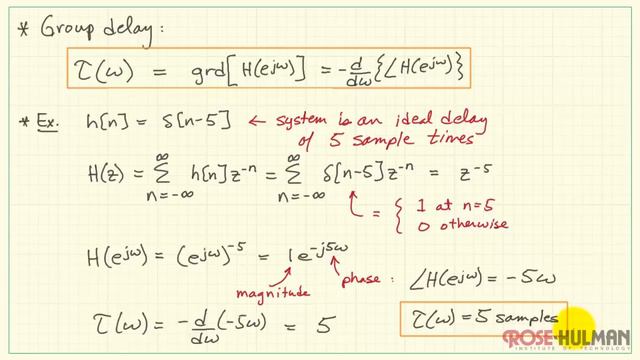 * Group delay:
τ(ω) = grd[H(e^jω)] = -d/dω{∠H(e^jω)}
* Ex: h[n] = δ[n-5] ← system is an ideal delay of 5 sample times
H(z) = ∑_{n=-∞}^{∞} h[n]z^-n = ∑_{n=-∞}^{∞} δ[n-5]z^-n = z^-5
= { 1 at n=5
0 otherwise
H(e^jω) = (e^jω)^-5 = 1e^-j5ω
magnitude
phase: ∠H(e^jω) = -5ω
τ(ω) = -d/dω(-5ω) = 5
τ(ω) = 5 samples
ROSE-HULMAN
INSTITUTE OF TECHNOLOGY